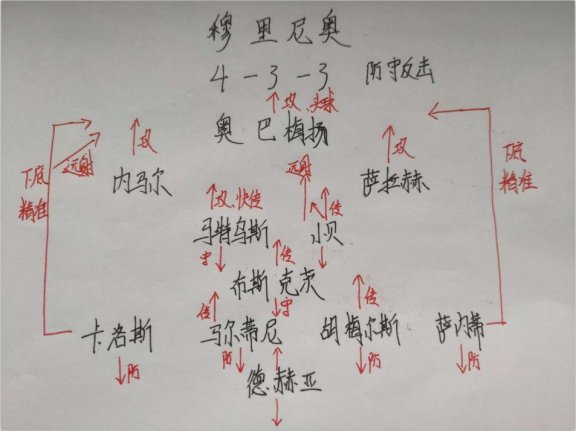 穆里尼奥
4-3-3 防守反击
攻、头球
奥巴梅扬
攻 攻
远射 远射
下底 精准
下底 精准
内马尔 萨拉赫
攻、快传 传
马特乌斯 小贝
守 传
布斯克茨
传 守 传
卡洛斯 马尔蒂尼 胡梅尔斯 萨内蒂
防 防 防 防
德赫亚